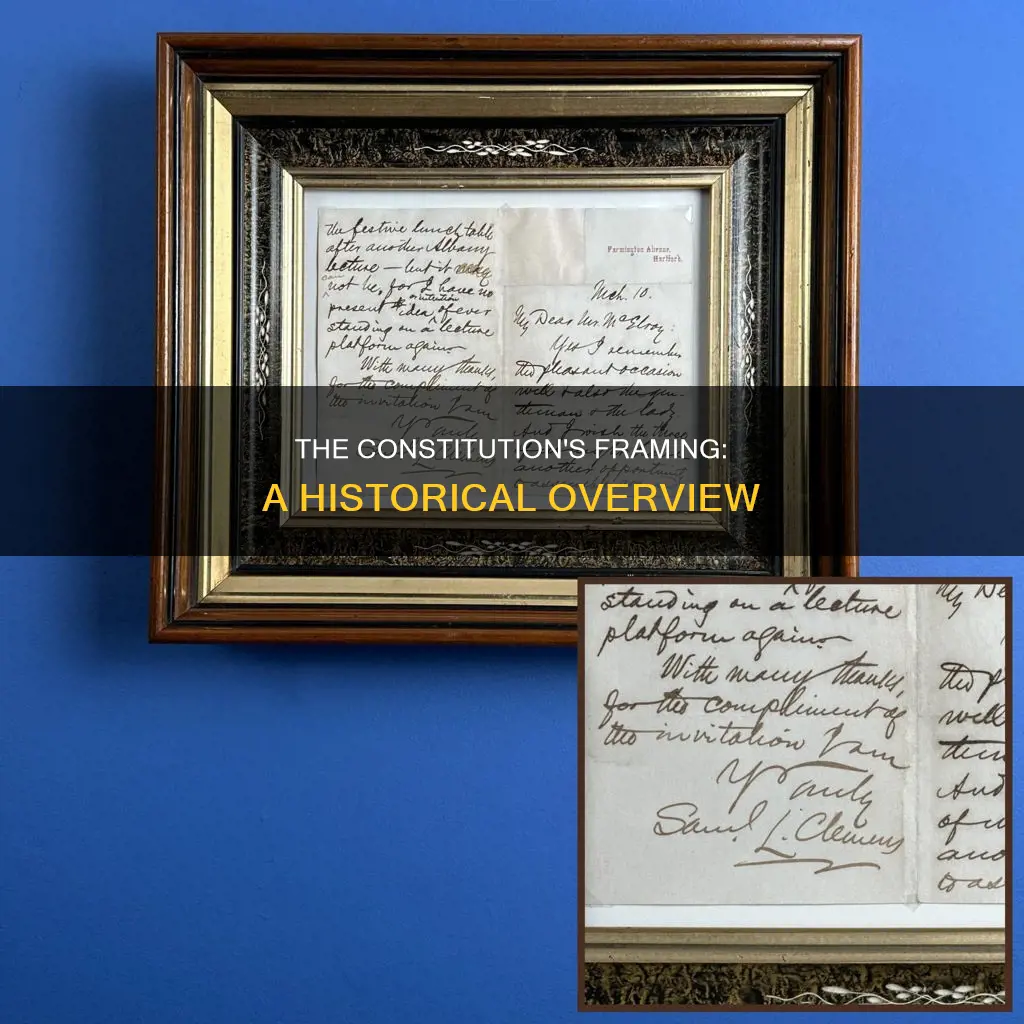 the festive lunch table
after another Albany
lecture — but it may
can
not be, for I have no
or intention
present idea of ever
standing on a lecture
platform again.
With many thanks,
for the compliment of
the invitation I am
Y truly
Farmington Avenue,
Hartford.
Mch. 10.
My Dear Mr. McElroy:
Yes I remember
the pleasant occasion
well & also the gen-
tleman & the lady
And I wish
another opportunity
THE CONSTITUTION'S FRAMING:
A HISTORICAL OVERVIEW
standing on a lecture
platform again.
With many thanks,
for the compliment of
the invitation I am
Y truly
Saml. L. Clemens
My De
the p
well
tlem
And
of
ano
to a